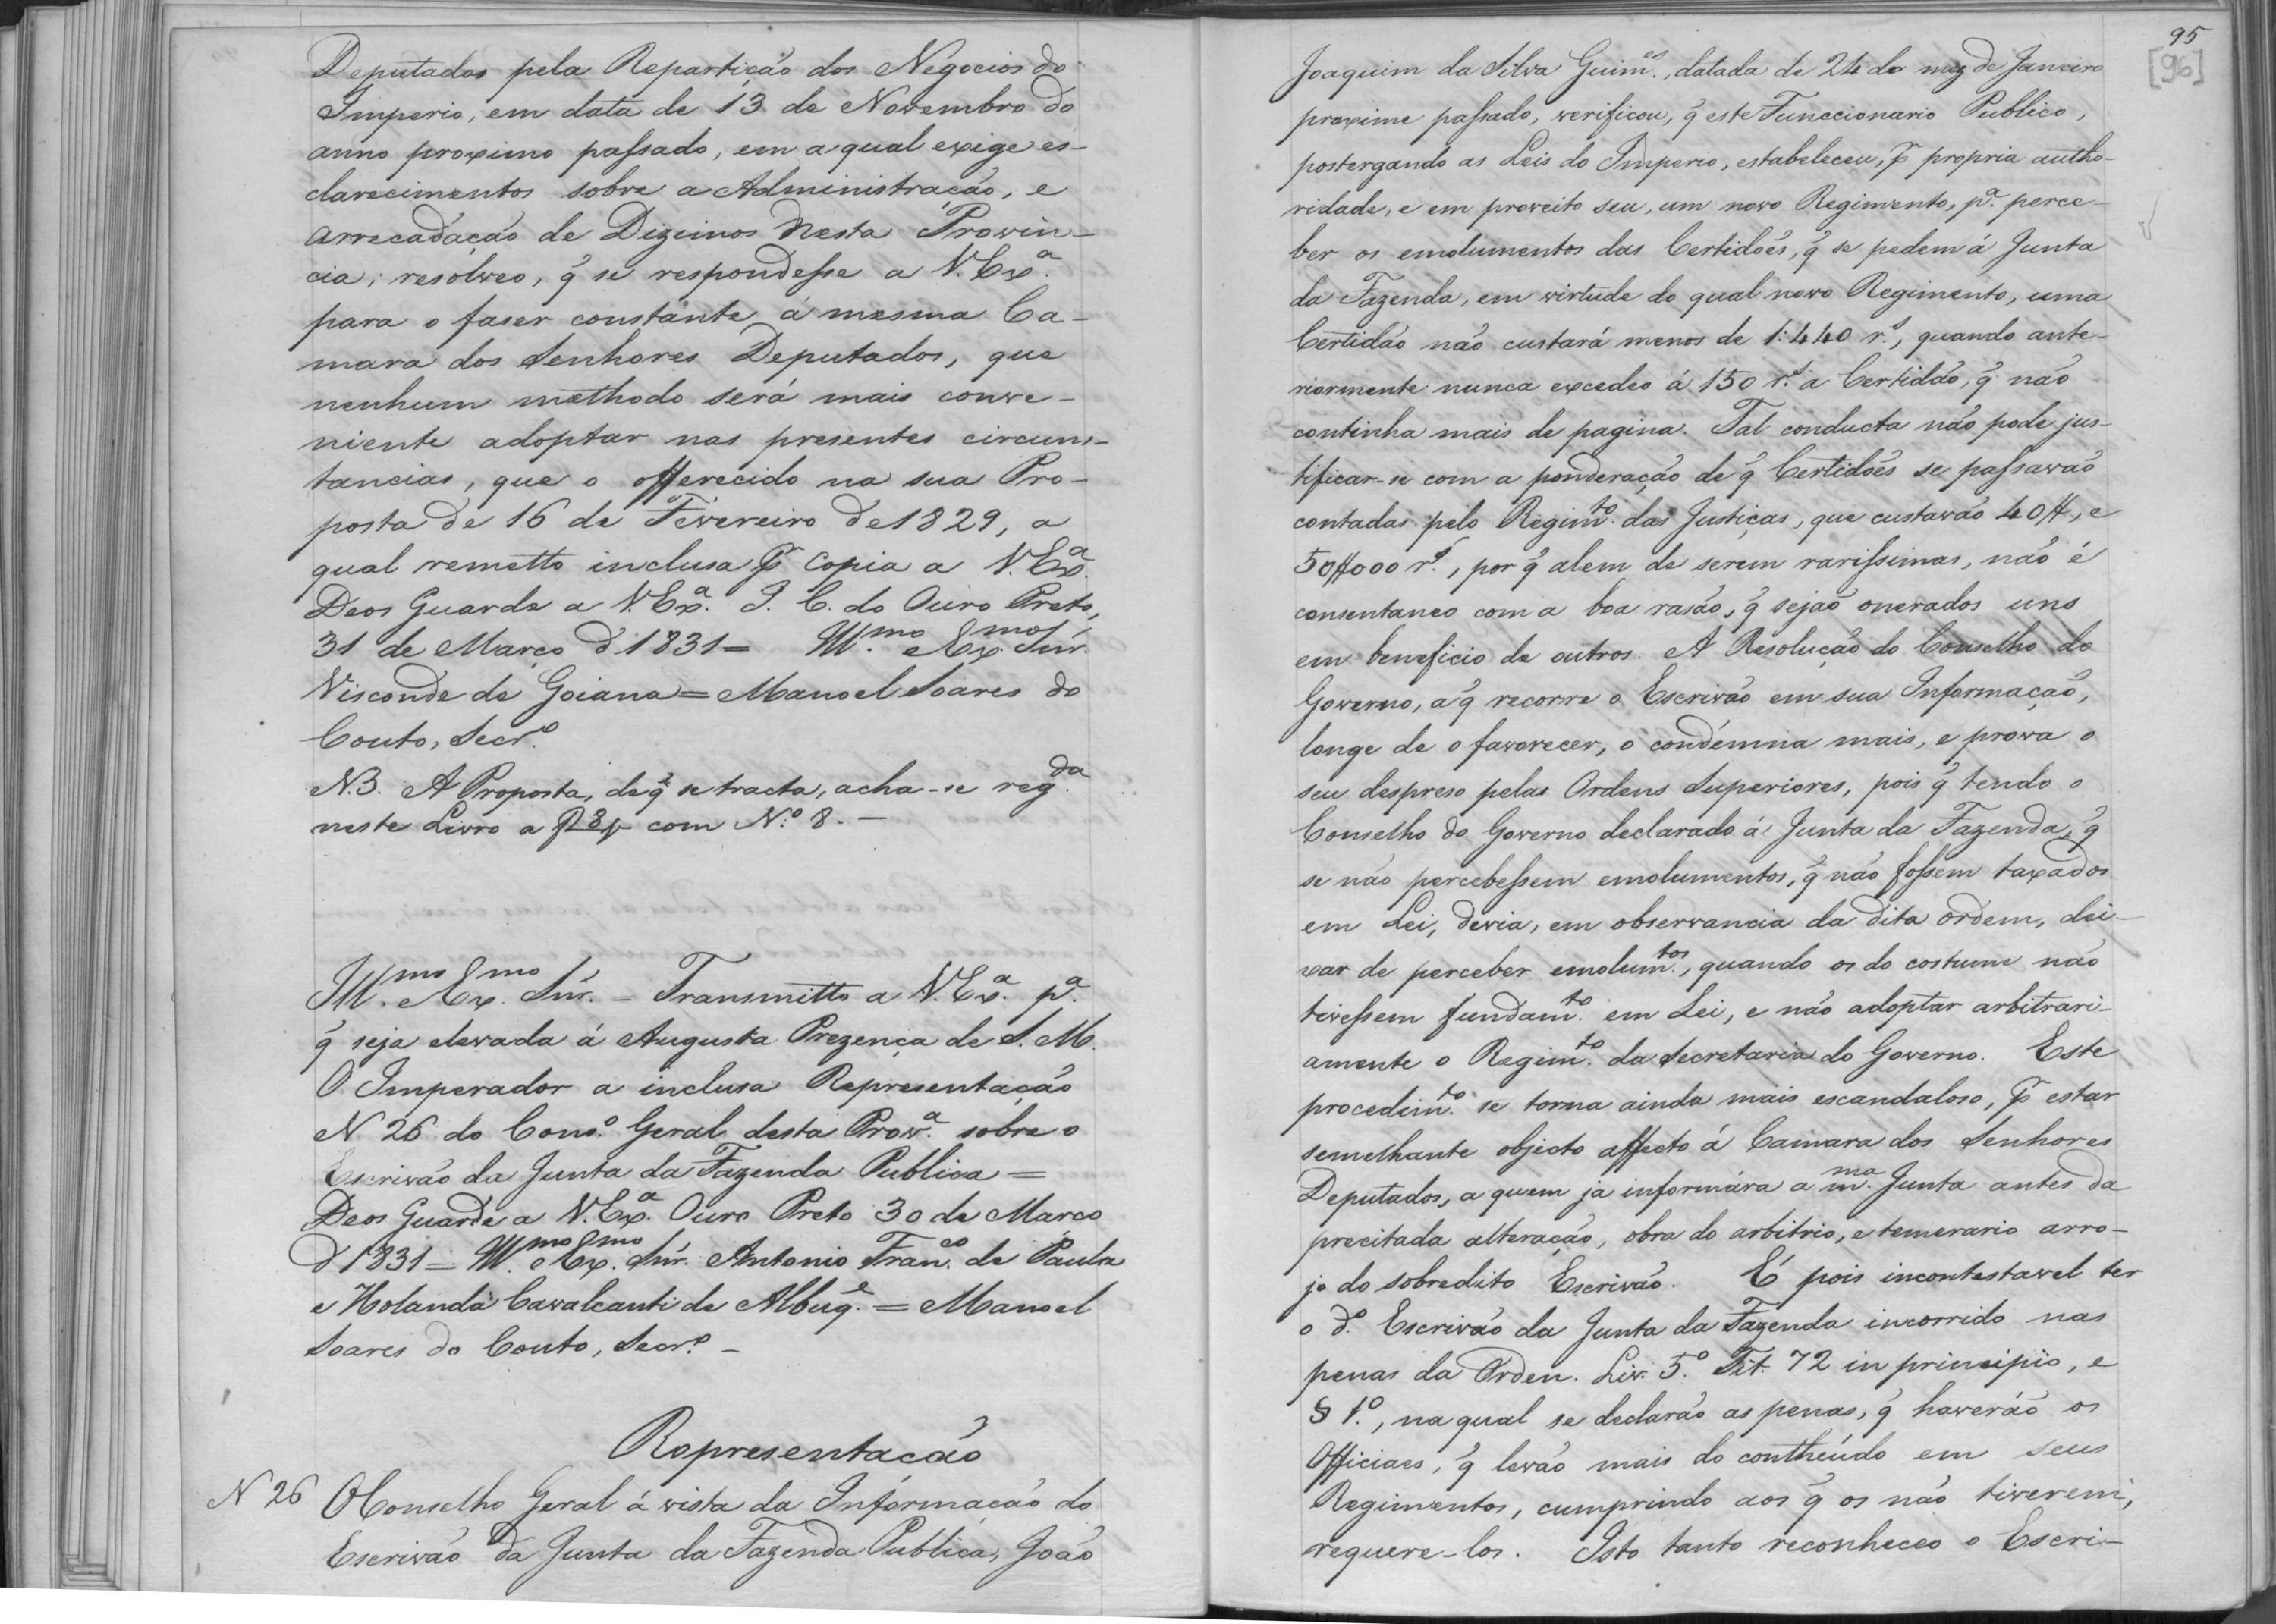 Deputados pela Repartição dos Negocios do
Imperio, em data de 13 de Novembro do
anno proximo passado, em a qual exige es-
clarecimentos sobre a Administração, e
arrecadação de Dizimos nesta Provin-
cia; resolveo, q̃ se respondesse a V. Ex.ª
para o faser constante á mesma Ca-
mara dos Senhores Deputados, que
nenhum methodo será mais conve-
niente adoptar nas presentes circuns-
tancias, que o offerecido na sua Pro-
posta de 16 de Fevereiro de 1829, a
qual remetto inclusa p̃ copia a V. Ex.ª
Deos Guarde a V. Ex.ª I. C. do Ouro Preto,
31 de Março d' 1831 = Ill.mo e Ex.mo Snr.
Visconde de Goiana = Manoel Soares do
Couto, Secr.º
N.B. A Proposta, de q̃ se tracta, acha-se reg.da
neste Livro a f 8 v com N.º 8. —
Ill.mo e Ex.mo Snr. – Transmitto a V. Ex.ª p.ª
q̃ seja elevada á Augusta Prezença de S. M.
O Imperador a inclusa Representação
N 26 do Cons.º Geral desta Prov.ª sobre o
Escrivão da Junta da Fazenda Publica =
Deos Guarde a V. Ex.ª Ouro Preto 30 de Março
d' 1831 = Ill.mo e Ex.mo Snr. Antonio Fran.co de Paula
e Holanda Cavalcanti de Albuq.e = Manoel
Soares do Couto, Secr.º –
Representação
N 26 O Conselho Geral á vista da Informação do
Escrivão da Junta da Fazenda Publica, João
95
[96]
Joaquim da Silva Guim.es, datada de 24 do mez de Janeiro
proxime passado, verificou, q̃ este Funccionario Publico,
postergando as Leis do Imperio, estabeleceu, p̃ propria autho-
ridade, e em proveito seu, um novo Regimento, p.ª perce-
ber os emolumentos das Certidões, q̃ se pedem á Junta
da Fazenda, em virtude do qual novo Regimento, uma
Certidão não custará menos de 1:440 r.s, quando ante-
riormente nunca excedeo á 150 r.s a Certidão, q̃ não
continha mais de pagina. Tal conducta não pode jus-
tificar-se com a ponderação de q̃ Certidões se passavão
contadas pelo Regim.to das Justiças, que custavão 40$, e
50$000 r.s, por q̃ alem de serem rarissimas, não é
consentaneo com a boa rasão, q̃ sejão onerados uns
em beneficio de outros. A Resolução do Conselho do
Governo, a q̃ recorre o Escrivão em sua Informação,
longe de o favorecer, o condemna mais, e prova o
seu despreso pelas Ordens Superiores, pois q̃ tendo o
Conselho do Governo declarado á Junta da Fazenda, q̃
se não percebessem emolumentos, q̃ não fossem taxados
em Lei, devia, em observancia da dita ordem, dei-
xar de perceber emolum.tos, quando os do costume não
tivessem fundam.to em Lei, e não adoptar arbitrari-
amente o Regim.to da Secretaria do Governo. Este
procedim.to se torna ainda mais escandaloso, p̃ estar
semelhante objecto affecto á Camara dos Senhores
Deputados, a quem ja informára a m.ma Junta antes da
precitada alteração, obra do arbitrio, e temerario arro-
jo do sobredito Escrivão. É pois incontestavel ter
o d.º Escrivão da Junta da Fazenda incorrido nas
penas da Orden. Liv. 5.º Tit. 72 in principio, e
§ 1.º, na qual se declarão as penas, q̃ haverão os
Officiaes, q̃ levão mais do contheúdo em seus
Regimentos, cumprindo aos q̃ os não tiverem,
requere-los. Isto tanto reconheceo o Escri-